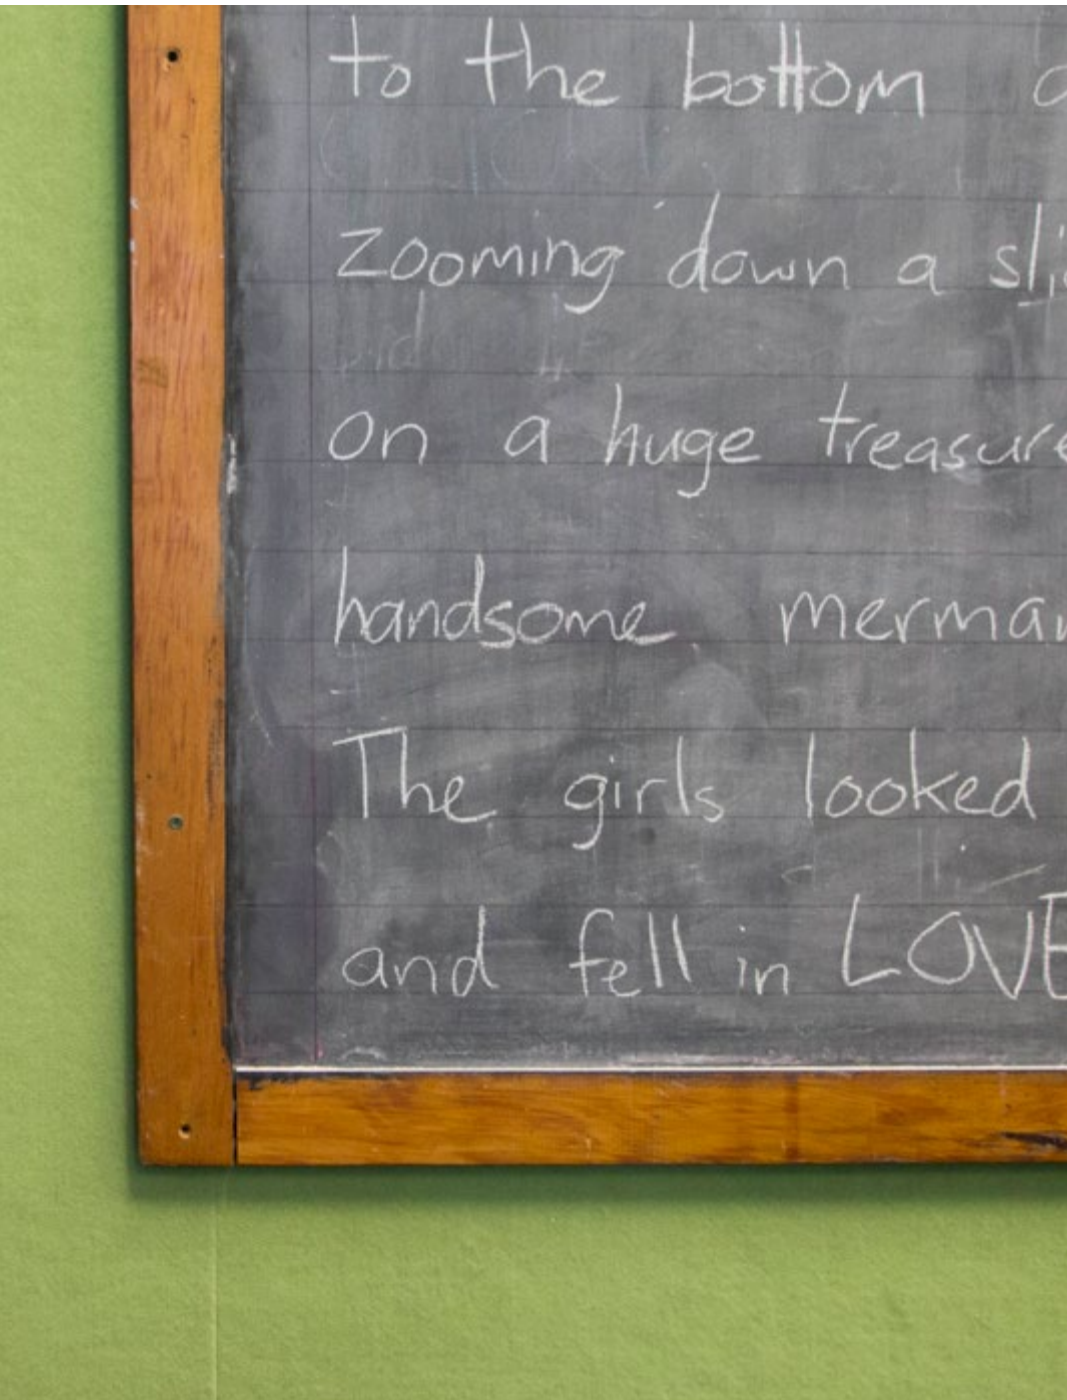 to the bottom
zooming down a
on a huge treasure
handsome merman
The girls looked
and fell in LOVE